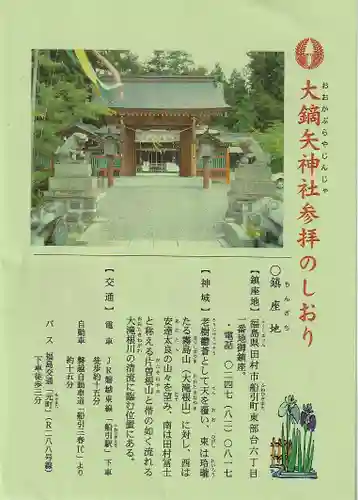 大鏑矢神社参拝のしおり
おおかぶらやじんじゃ
○鎮座地
ちんざち
【鎮座地】福島県田村市船引町東部台六丁目
一番地御鎮座。
・電話 〇二四七(八二)〇八一七
【神域】老樹鬱蒼として天を覆い、東は玲瓏
たる霧島山(大滝根山)に対し、西は
安達太良の山々を望み、南は田村富士
と称える片曽根山と偕の如く流れる
大滝根川の清流に臨む位置にある。
【交通】電車 JR磐越東線「船引駅」下車
徒歩約十五分
自動車 磐越自動車道「船引三春IC」より
約十五分
バス 福島交通「元町」(R二八八号線)
下車徒歩三分